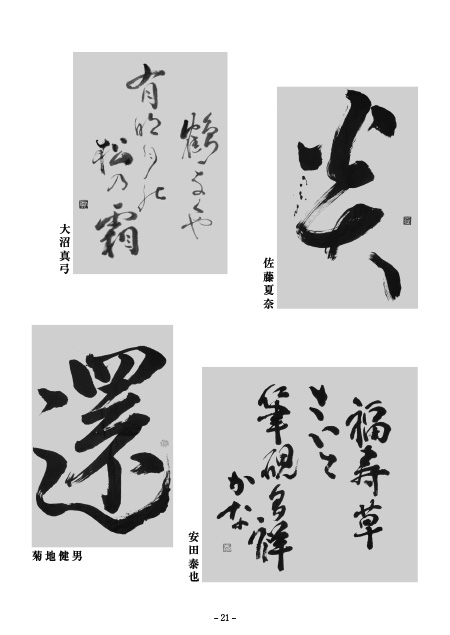 有明月
松乃霜
大沼真弓
佐藤夏奈
還
菊地健男
福寿草
さいて
筆硯多祥
かな
安田泰也
- 21 -